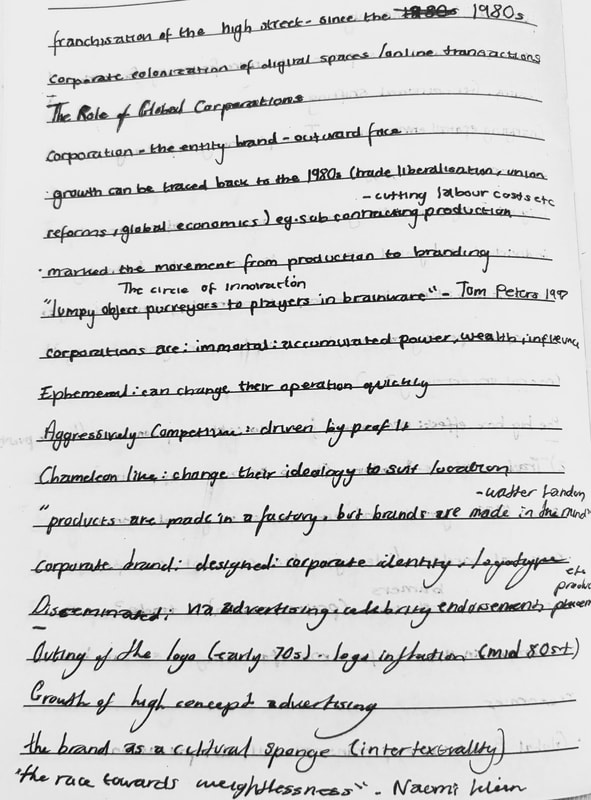 franchisation of the high street - since the 1980s 1980s
corporate colonization of digital spaces /online transactions
The Role of Global Corporations
corporation - the entity brand - outward face
· growth can be traced back to the 1980s (trade liberalisation, union
- cutting labour costs etc
reforms, global economics) eg. sub contracting production
· marked the movement from production to branding
The circle of innovation
"lumpy object purveyors to players in brainware" - Tom Peters 199
corporations are: immortal: accumulated power, wealth, influence
Ephemeral: can change their operation quickly
Aggressively Competitive: driven by profit
Chameleon like: change their ideology to suit location
- Walter Landon
"products are made in a factory, but brands are made in the mind"
corporate brand: designed: corporate identity, logotype
etc
Disseminated: via advertising, celebrity endorsement, product placem
Outing of the logo (early 70s) - logo inflation (mid 80s+)
Growth of high concept advertising
the brand as a cultural sponge (intertextuality)
"the race towards weightlessness" - Naomi Klein